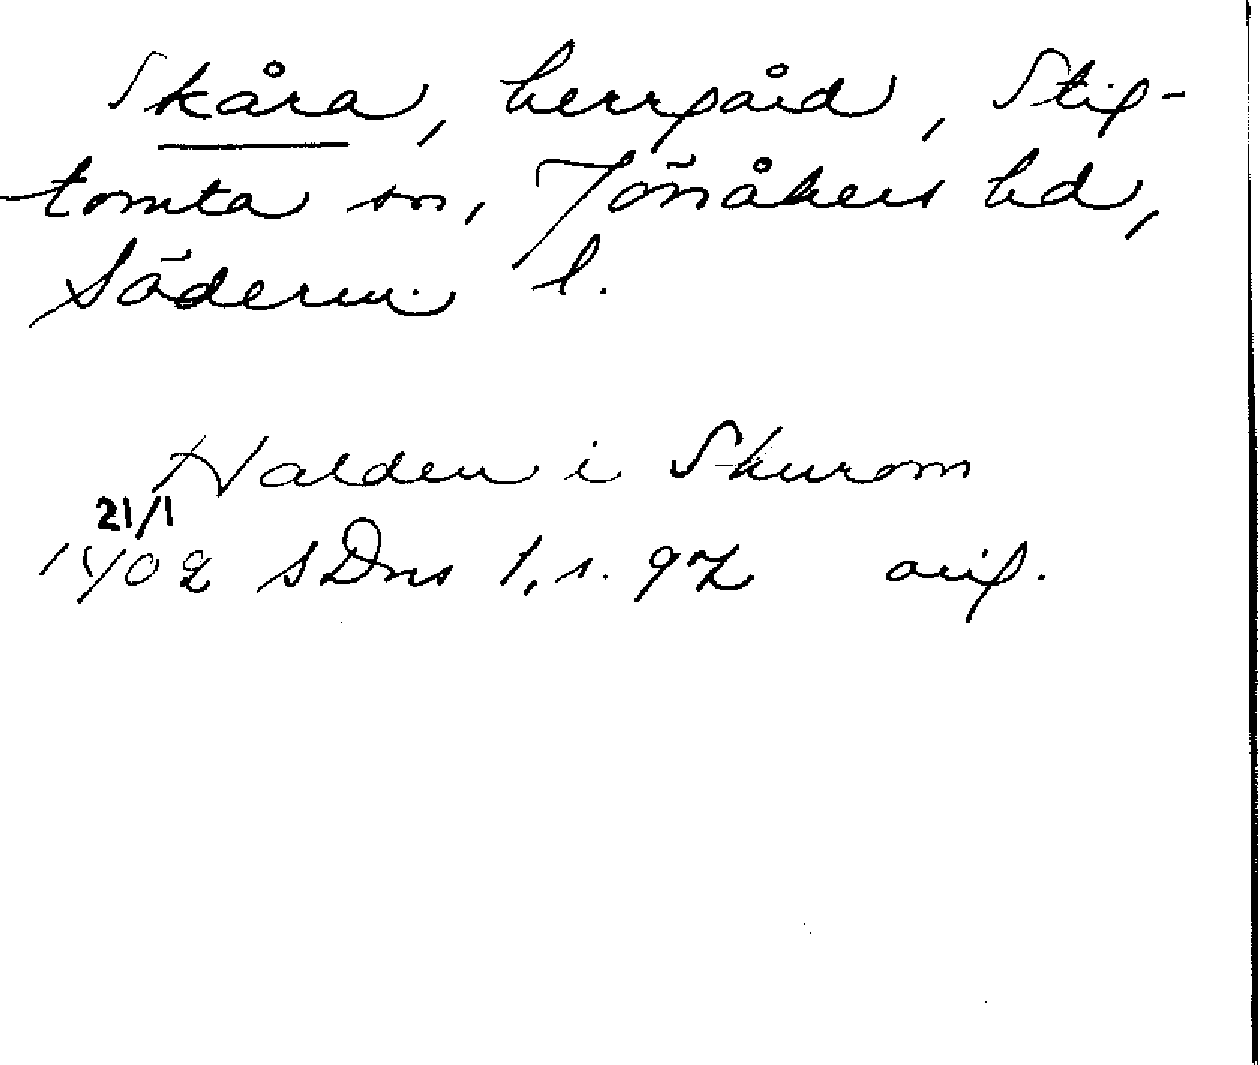 Skåra, herrgård, Stig-
tomta sn, Jönåkers hd,
Söderm. l.
Halden i Skurom
21/1
1402 SDns 1, s. 97 orig.